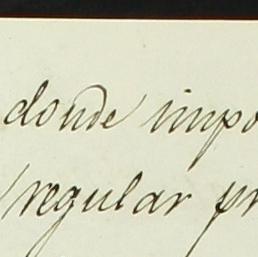 donde impo
regular pr